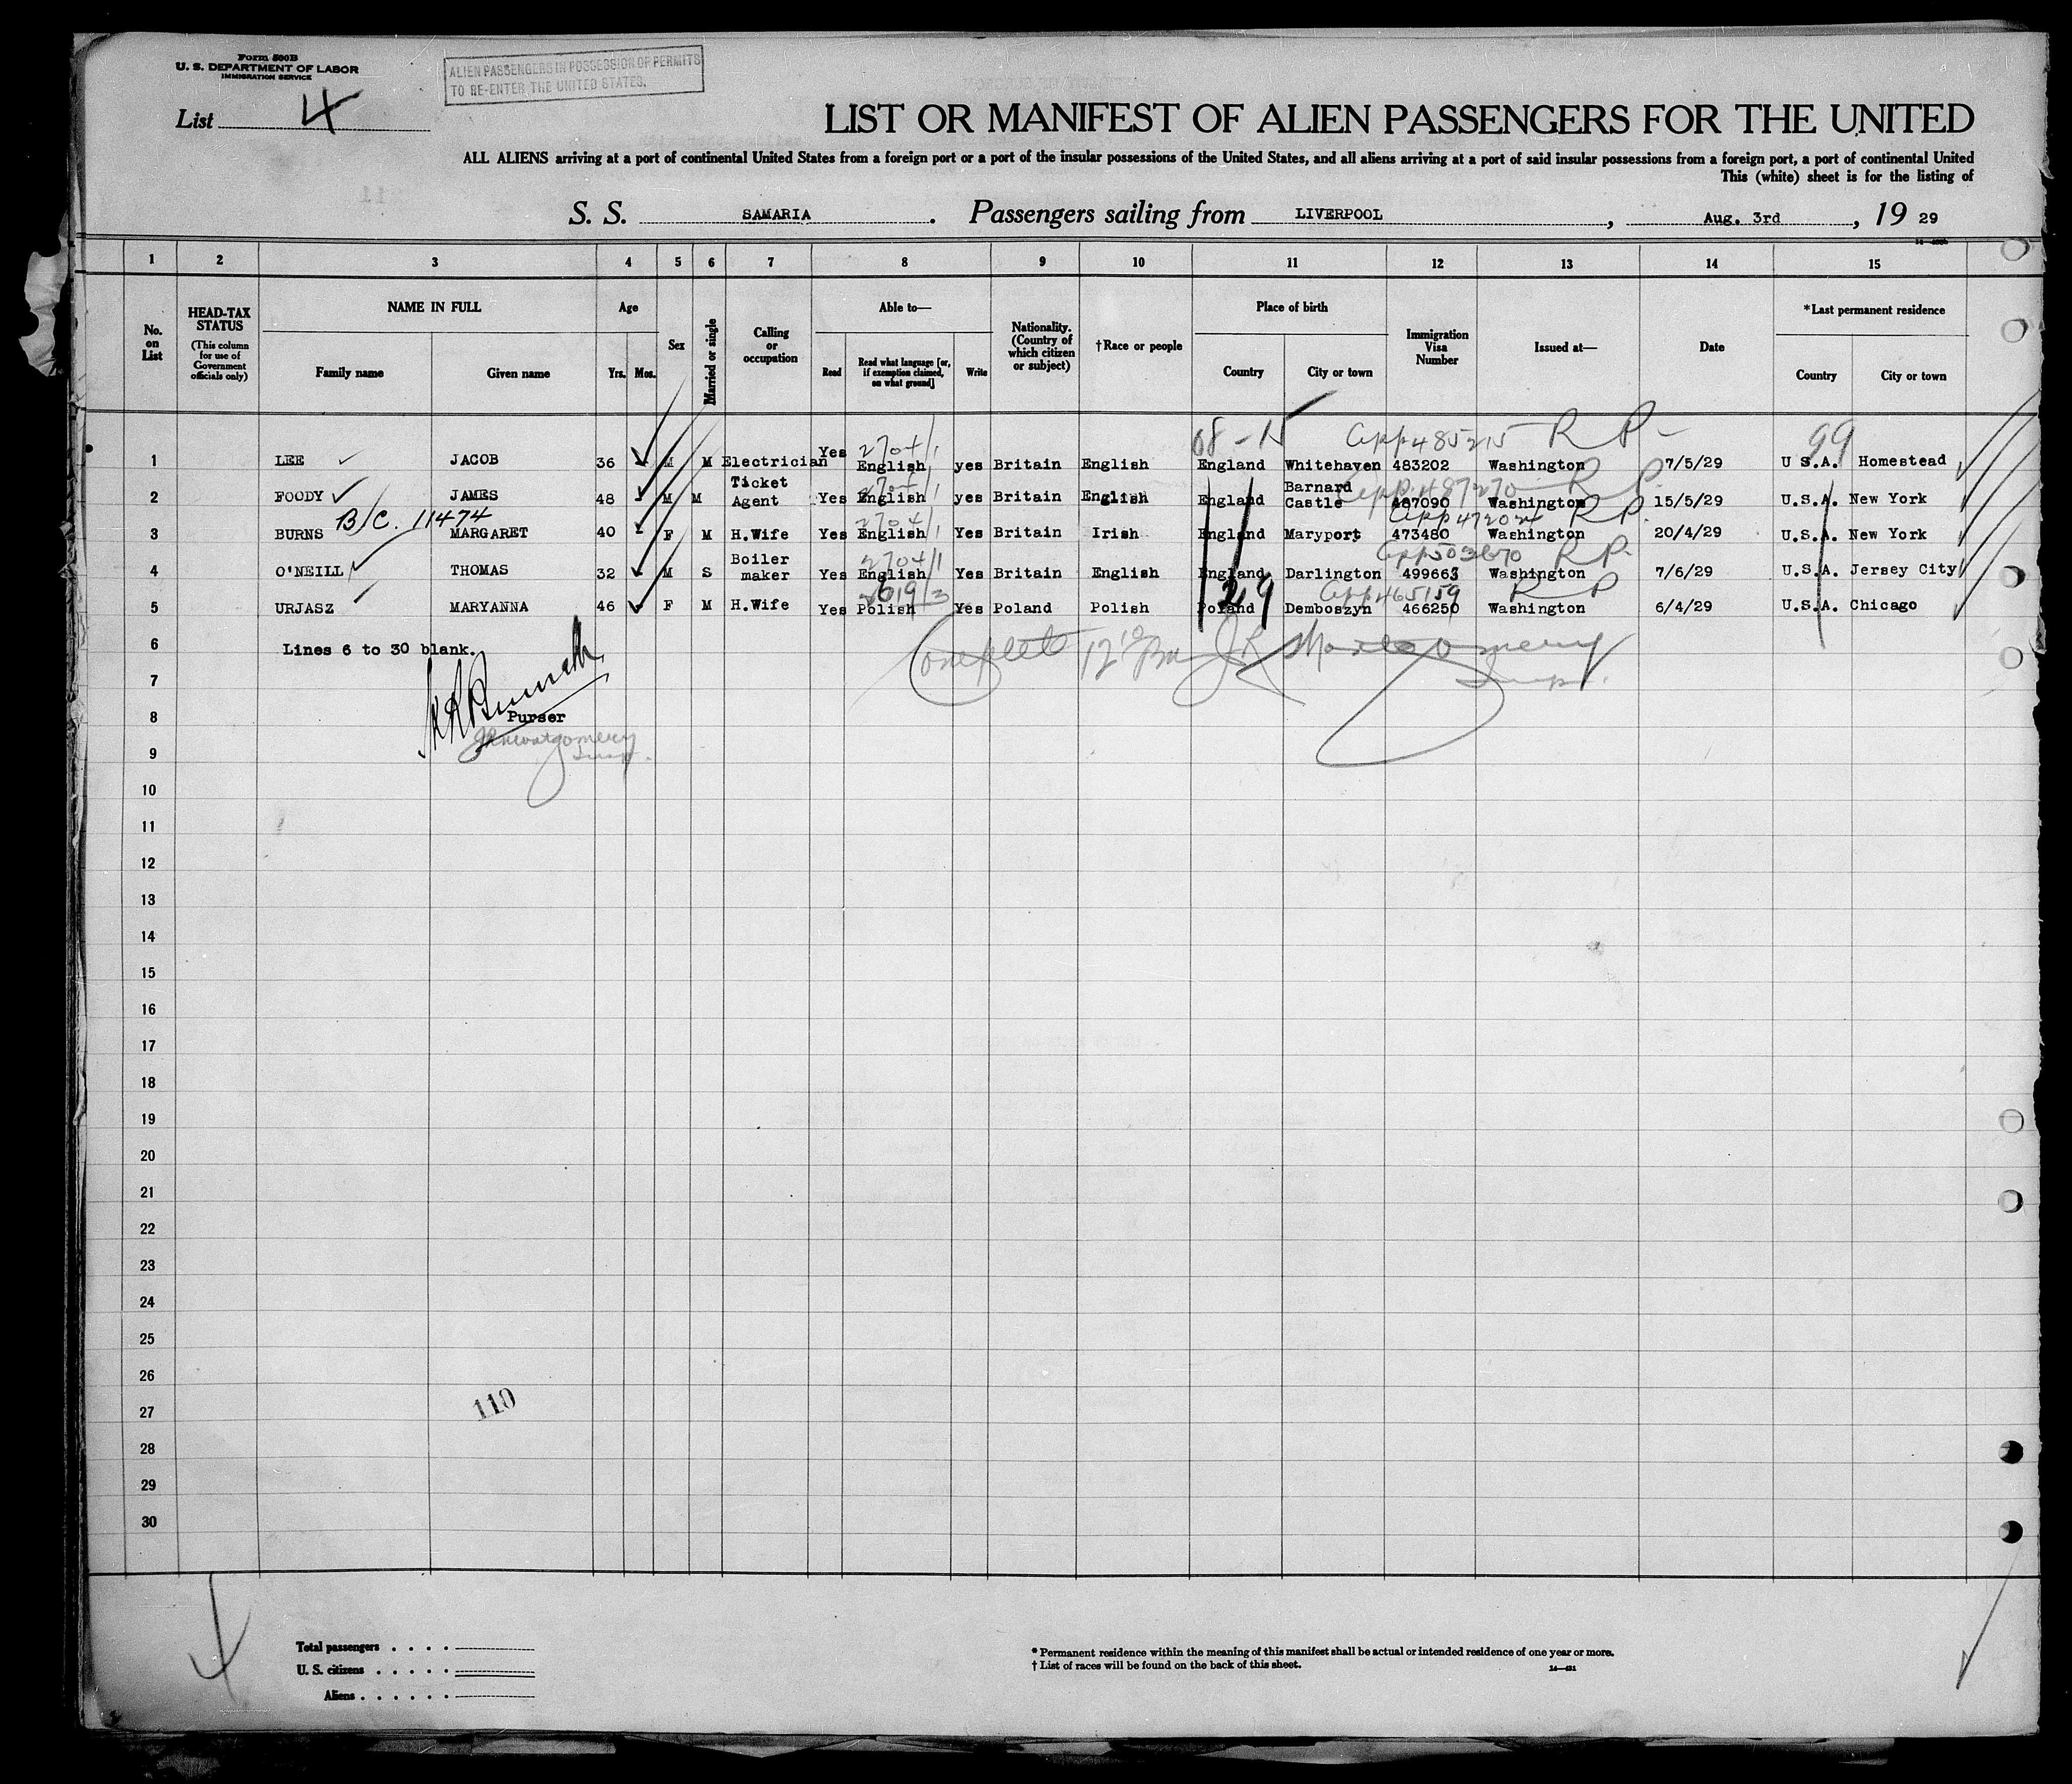 Form 500B
U. S. DEPARTMENT OF LABOR
IMMIGRATION SERVICE
ALIEN PASSENGERS IN POSSESSION OF PERMITS
TO RE-ENTER THE UNITED STATES.
List 4
LIST OR MANIFEST OF ALIEN PASSENGERS FOR THE UNITED
ALL ALIENS arriving at a port of continental United States from a foreign port or a port of the insular possessions of the United States, and all aliens arriving at a port of said insular possessions from a foreign port, a port of continental United
This (white) sheet is for the listing of
S. S. SAMARIA. Passengers sailing from LIVERPOOL, Aug. 3rd, 19 29
1 2 3 4 5 6 7 8 9 10 11 12 13 14 15
No. on List
HEAD-TAX STATUS (This column for use of Government officials only)
NAME IN FULL
Family name Given name
Age
Yrs. Mos.
Sex
Married or single
Calling or occupation
Able to—
Read Read what language [or, if exemption claimed, on what ground] Write
Nationality. (Country of which citizen or subject)
†Race or people
Place of birth
Country City or town
Immigration Visa Number
Issued at—
Date
*Last permanent residence
Country City or town
08-15 app 485215 R P- 99
2704/1
1 LEE JACOB 36 M M Electrician Yes English yes Britain English England Whitehaven 483202 Washington 7/5/29 U S.A. Homestead
app. 487270 R P.
2 FOODY JAMES 48 M M Ticket Agent Yes English yes Britain English England Barnard Castle 487090 Washington 15/5/29 U.S.A. New York
B/C. 11474 2704/1 R P.
3 BURNS MARGARET 40 F M H.Wife Yes English Yes Britain Irish England Maryport 473480 Washington 20/4/29 U.S.A. New York
2704/1 R P.
4 O'NEILL THOMAS 32 M S Boiler maker Yes English Yes Britain English England Darlington 499663 Washington 7/6/29 U.S.A. Jersey City
619/3 29 app 465159 R P
5 URJASZ MARYANNA 46 F M H.Wife Yes Polish Yes Poland Polish Poland Demboszyn 466250 Washington 6/4/29 U.S.A. Chicago
6 Lines 6 to 30 blank. Complete JR Montgomery
Insp.
7
8 Purser
JR Montgomery
Insp.
9
10
11
12
13
14
15
16
17
18
19
20
21
22
23
24
25
26
27 110
28
29
30
Total passengers . . . .
U. S. citizens . . . . .
Aliens . . . . . .
* Permanent residence within the meaning of this manifest shall be actual or intended residence of one year or more.
† List of races will be found on the back of this sheet.